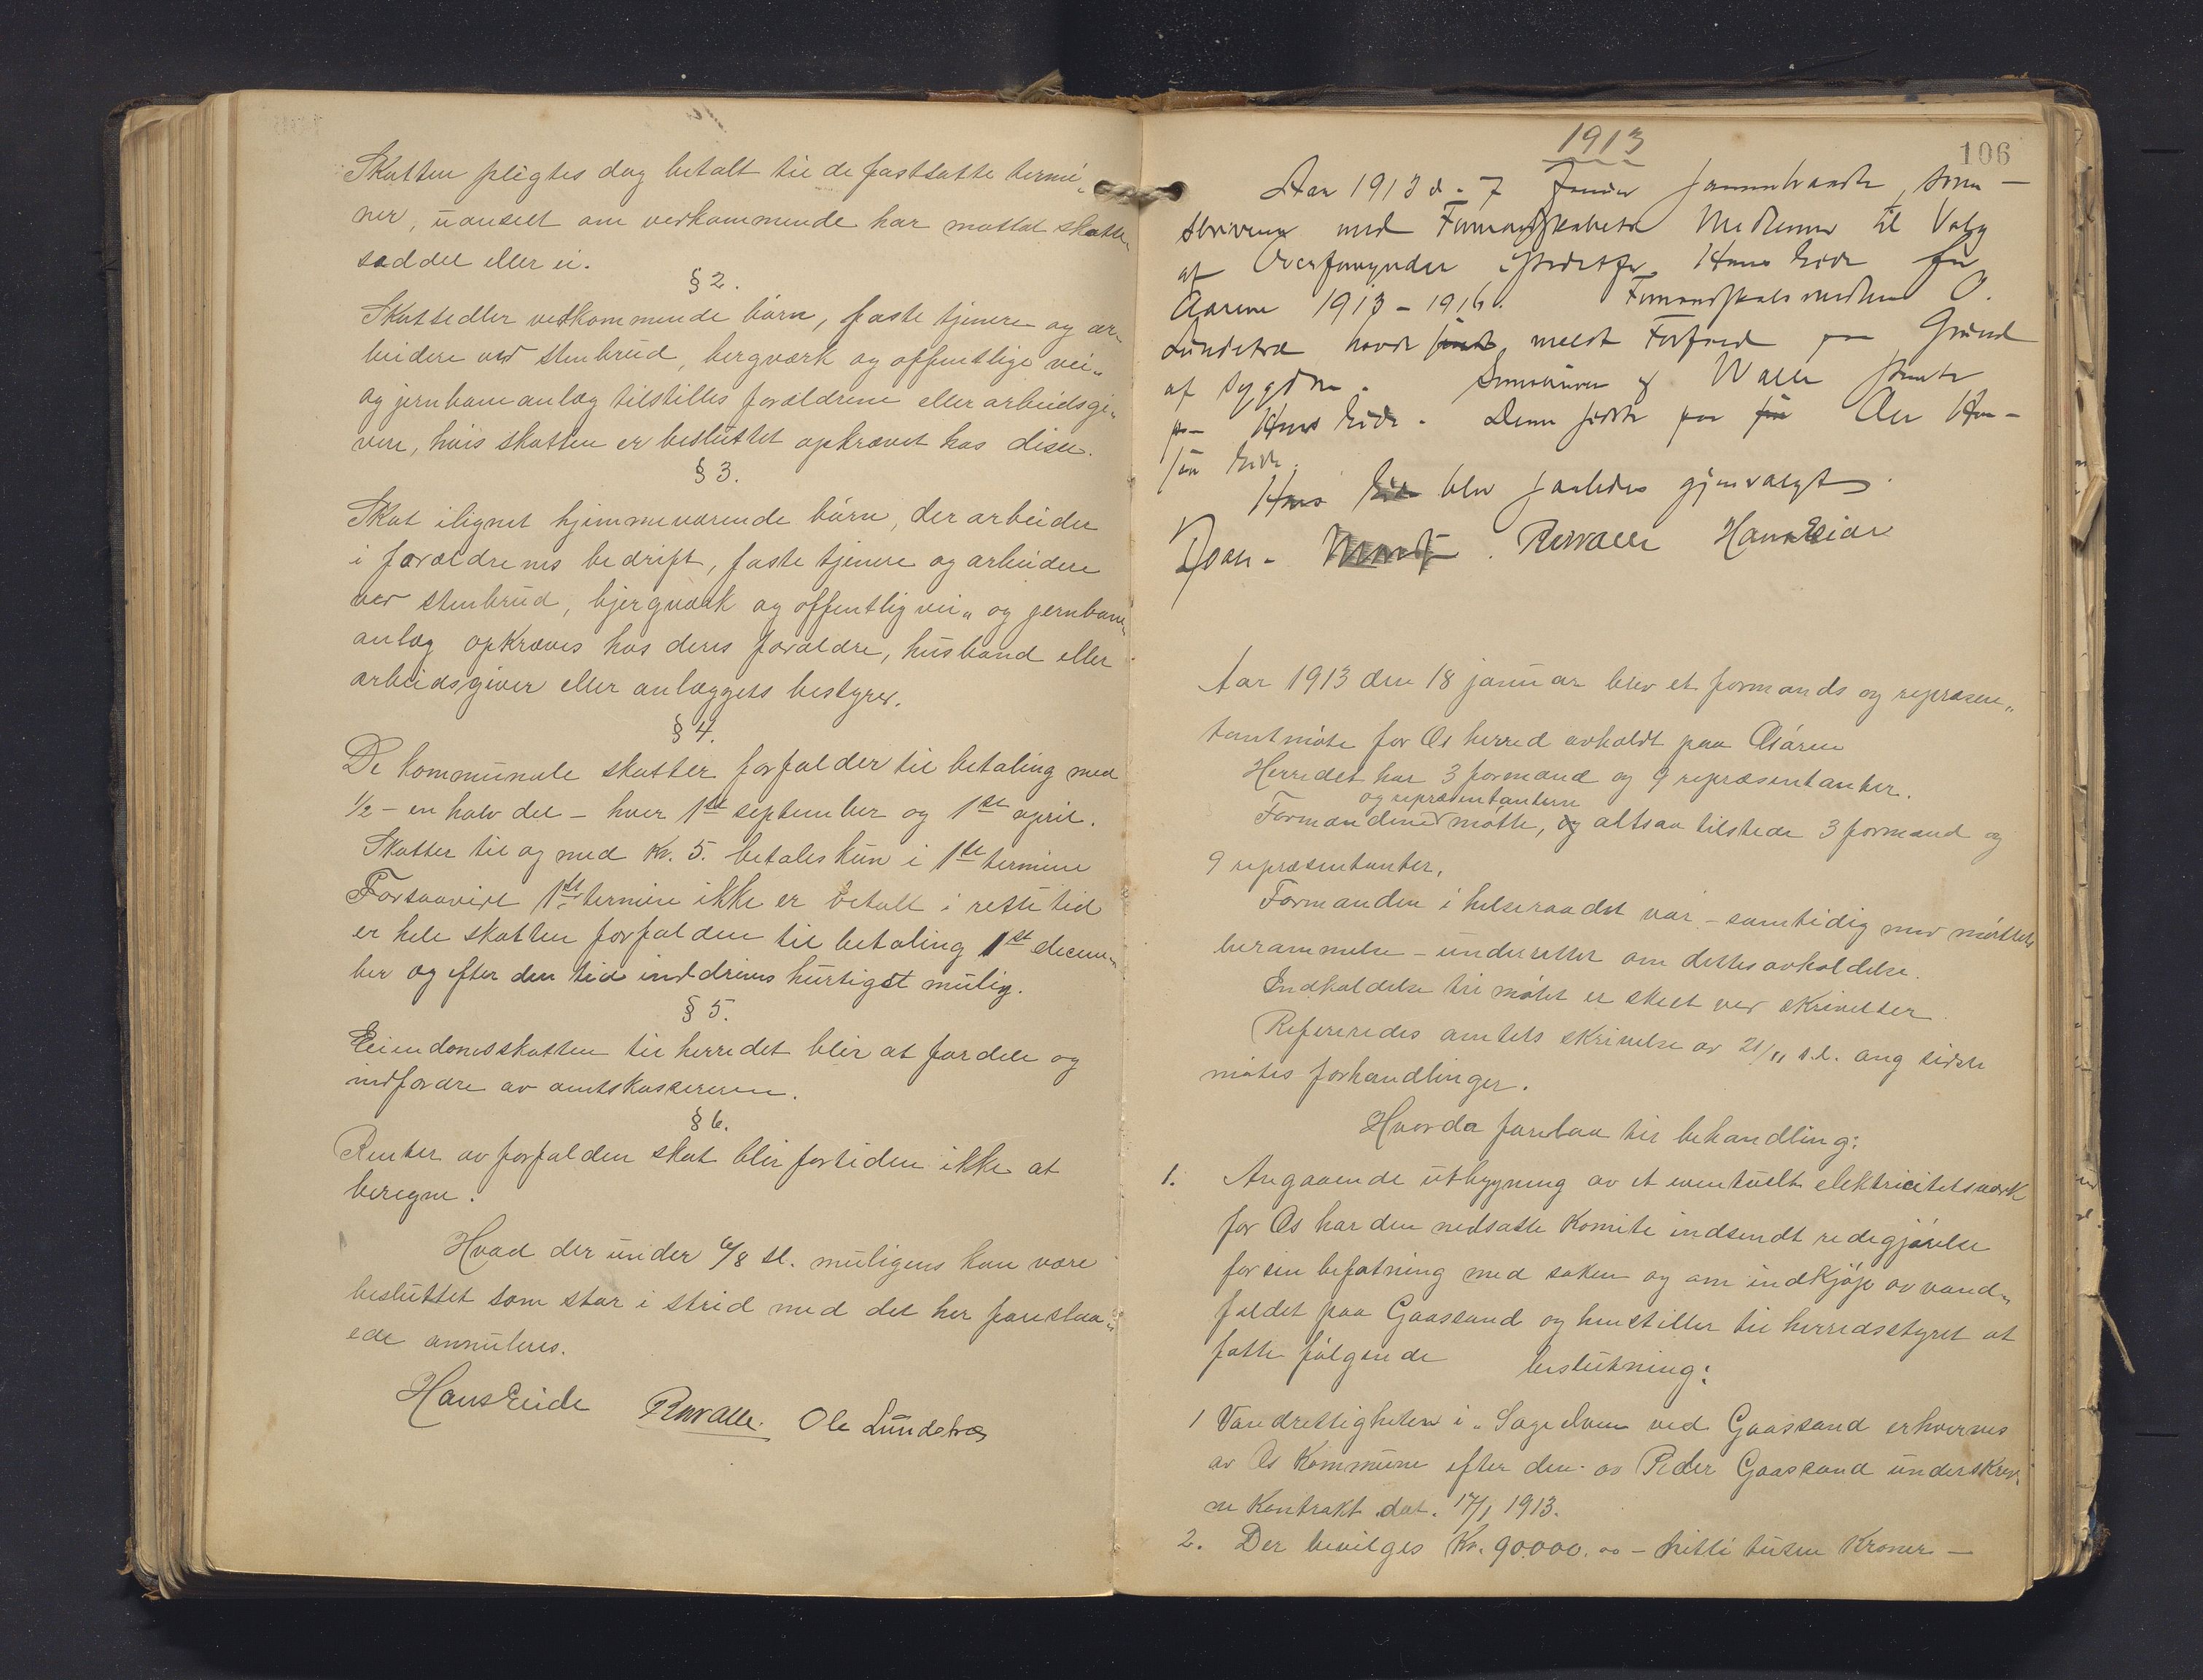 Skatten pligtes dog betalt til de fastsatte termi„
ner, uanseet om vedkommende har mottat skatte„
seddel eller ei.
§ 2.
Skatsedler vedkommende børn, faste tjenere og ar„
beidere ved stenbrud, bergværk og offentlige vei„
og jernbaneanlæg tilstilles forældrene eller arbeidsgi„
vere, hvis skatten er besluttet opkrævet hos disse.
§ 3.
Skat ilignet hjemmeværende børn, der arbeider
i forældrenes bedrift, faste tjenere og arbeidere
ved stenbrud, bjergværk og offentlig vei„ og jernbane„
anlæg opkræves hos deres forældre, husbond eller
arbeidsgiver eller anlæggets bestyrer.
§ 4.
De kommunale skatter forfalder til betaling med
1/2 - en halv del - hver 1ste september og 1ste april.
Skatter til og med Kr. 5. betales kun i 1ste termine
Forsaavidt 1ste termine ikke er betalt i rette tid
er hele skatten forfalden til betaling 1ste decem„
ber og efter den tid inddrives hurtigst mulig.
§ 5.
Eiendomsskatten til herredet blir at fordele og
indfordre av amtskassereren.
§ 6.
Renter av forfalden skat blir fortiden ikke at
beregne.
Hvad der under 6/8 sl. muligens kan være
besluttet som star i strid med det her foreslaa„
ede annuleres.
Hans Eide RWalle. Ole Lundetræ
1913
106
Aar 1913 d. 7 Januar sammentraadte, Soren-
skriveren med Formandskabets Medlemmer til Valg
af Overformynder istedetfor Hans Eide for
Aarene 1913 - 1916. Formandskabsmedlem O.
Lundetræ havde meldt Forfald paa Grund
af Sygdom. Sorenskriveren og Walle stemte
paa Hans Eide. Denne stemte paa
Eide.
Hans Eide blev saaledes gjenvalgt.
RWalle Hans Eide
Aar 1913 den 18 januar blev et formands og repræsen„
tantmøte for Os herred avholdt paa Osøren
Herredet har 3 formænd og 9 repræsentanter.
og repræsentantene
Formændene møtte, og altsaa tilstede 3 formænd og
9 repræsentanter.
Formanden i helseraadet var - samtidig med møttets
berammelse - underettet om dettes avholdelse.
Indkaldelse til møtet er skeet ved skrivelser.
Refereredes amtets skrivelse av 21/11 s.l. ang sidste
møtes forhandlinger.
Hvorda forelaa til behandling:
1. Angaaende utbygning av et eventuelt elektricitetsværk
for Os har den nedsatte Komite indsendt redegjørelse
for sin befatning med saken og om indkjøp av vand„
faldet paa Gaassand og henstiller til herredsstyret at
fatte følgende beslutning:
1 Vandrettigheten i „Sageelven ved Gaassand erhverves
av Os Kommune efter den av Peder Gaassand underskrev„
ne Kontrakt dat. 17/1 1913.
2. Der bevilges Kr. 90.000.oo - nitti tusen Kroner -